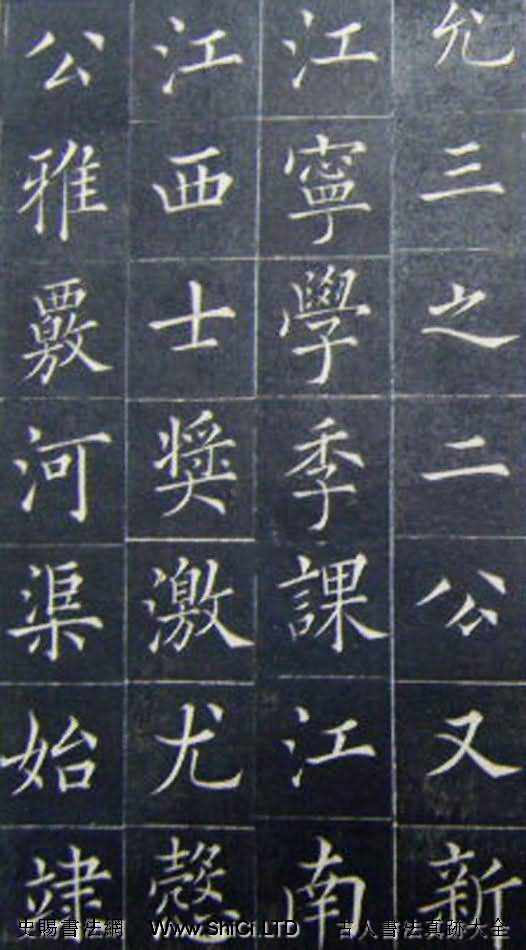 允三之二公又新
江寧學季課江南
江西士奬激尤
公雅覈河渠始
史賜書法網 Www.ShiCi.LTD 古人書法真跡大全